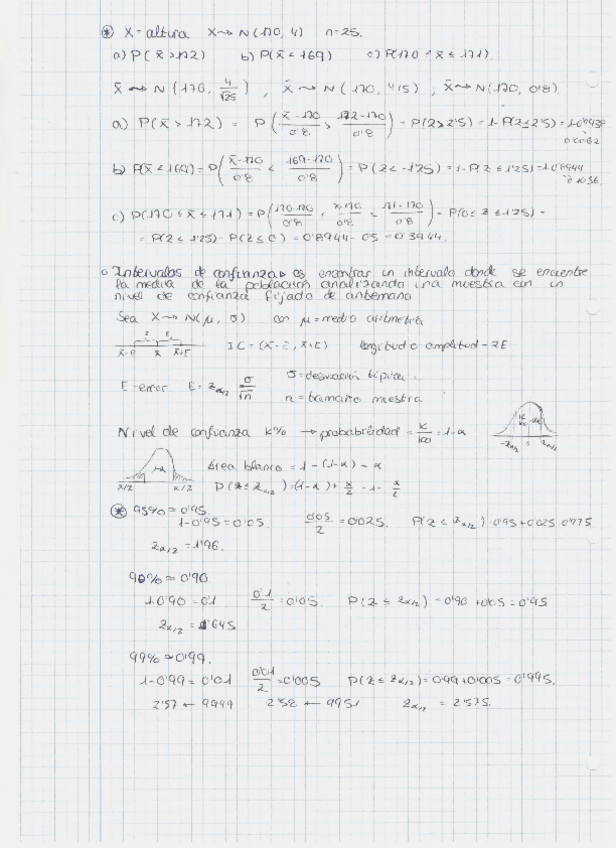 ⊛ X = altura X → N(170, 4) n=25.
a) P(x̄ > 172) b) P(x̄ < 169) c) P(170 ≤ x̄ ≤ 171).
x̄ → N(170, 4/√25), x̄ → N(170, 4/5), x̄ → N(170, 0'8)
a) P(x̄ > 172) = P((x̄-170)/0'8 > (172-170)/0'8) = P(Z > 2'5) = 1-P(Z≤2'5) = 1-0'9938
0'0062
b) P(x̄ < 169) = P((x̄-170)/0'8 < (169-170)/0'8) = P(Z < -1'25) = 1-P(Z ≤ 1'25) = 1-0'8944
0'1056
c) P(170 ≤ x̄ ≤ 171) = P((170-170)/0'8 ≤ (x̄-170)/0'8 ≤ (171-170)/0'8) = P(0 ≤ Z ≤ 1'25) =
= P(Z ≤ 1'25) - P(Z ≤ 0) = 0'8944 - 0'5 = 0'3944.
○ Intervalos de confianza: es encontrar un intervalo donde se encuentre
la media de la población analizando una muestra con un
nivel de confianza fijado de antemano
Sea X → N(μ, σ) con μ = media aritmética
E E
x̄-E x̄ x̄+E IC = (x̄-E, x̄+E) longitud o amplitud = 2E
E = error E = Zα/2 σ/√n σ = desviación típica
n = tamaño muestra
Nivel de confianza K% → probabilidad = K/100 = 1-α
-Zα/2 Zα/2
1-α
α/2 α/2 Área blanco = 1-(1-α) = α
P(Z ≤ Zα/2) = (1-α) + α/2 = 1 - α/2
⊛ 95% = 0'95
1-0'95 = 0'05. 0'05/2 = 0'025. P(Z ≤ Zα/2) 0'95 + 0'025 0'975
Zα/2 = 1'96.
90% = 0'90
1-0'90 = 0'1 0'1/2 = 0'05. P(Z ≤ Zα/2) = 0'90 + 0'05 = 0'95
Zα/2 = 1'645
99% = 0'99.
1-0'99 = 0'01 0'01/2 = 0'005 P(Z ≤ Zα/2) = 0'99 + 0'005 = 0'995.
2'57 ← 9949 2'58 ← 9951 Zα/2 = 2'575.